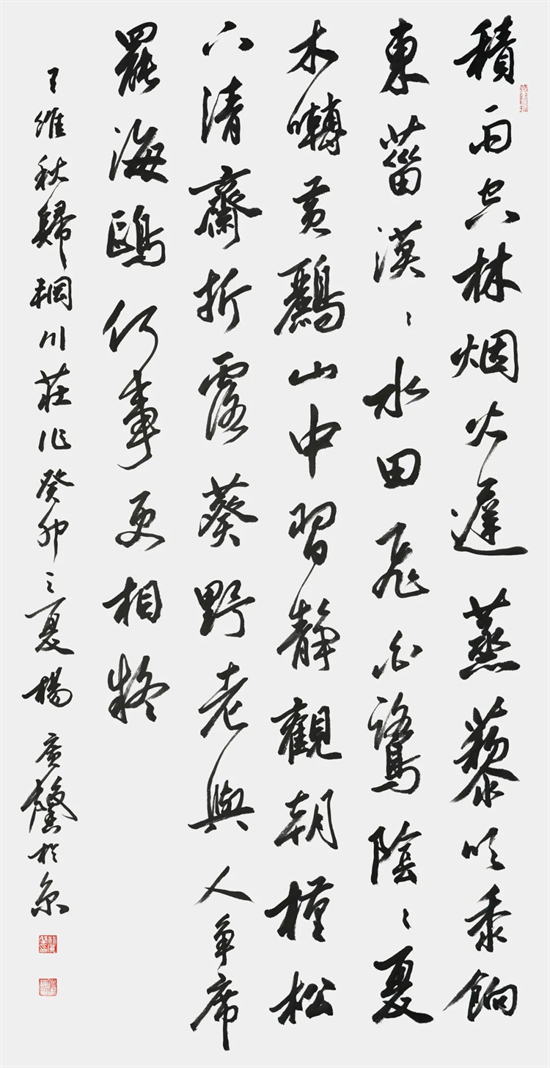 積雨空林烟火遲蒸藜炊黍餉
東菑漠〻水田飛白鷺陰〻夏
木囀黃鸝山中習靜觀朝槿松
下清齋折露葵野老與人爭席
罷海鷗何事更相疑
王維秋歸輞川莊作癸卯之夏楊廣馨於京